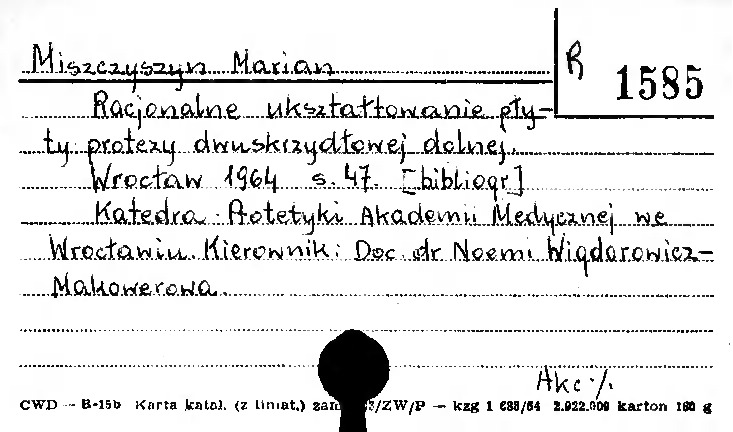 Miszczyszyn Marian
R 1585
Racjonalne ukształtowanie pły-
ty protezy dwuskrzydłowej dolnej.
Wrocław 1964 s. 47. [bibliogr]
Katedra Protetyki Akademii Medycznej we
Wrocławiu. Kierownik: Doc. dr Noemi Wigdorowicz-
Makowerowa.
Akc ./.
CWD — B-15b Karta katal. (z liniat.) zam /ZW/P — kzg 1 635/64 2.922.000 karton 160 g